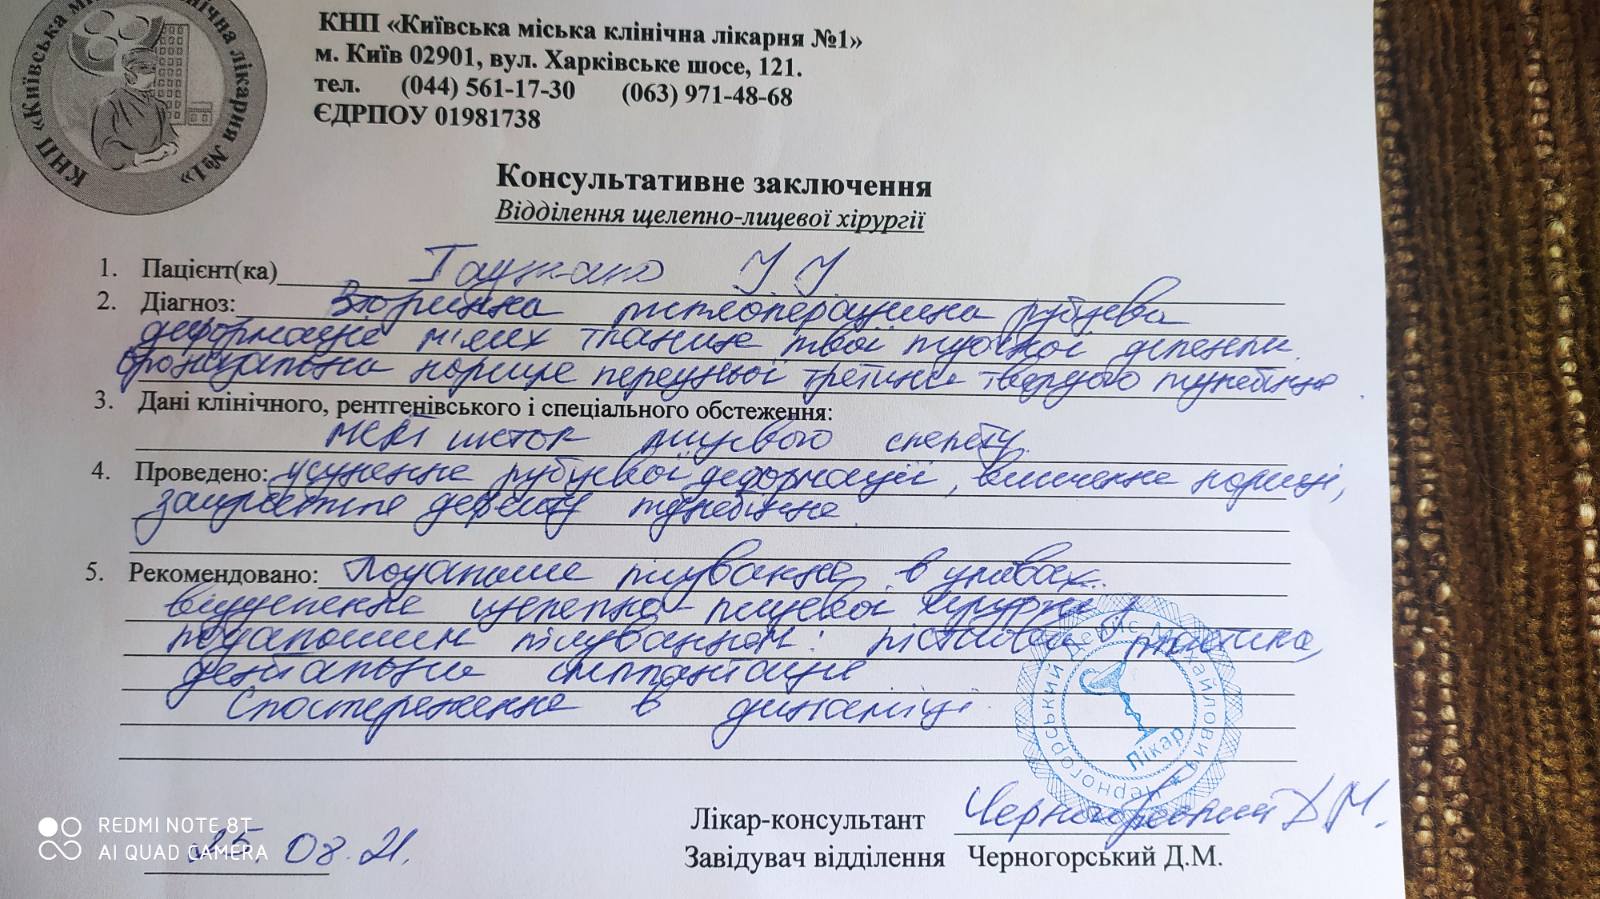 КНП «Київська міська клінічна лікарня №1»
КНП «Київська міська клінічна лікарня №1»
м. Київ 02901, вул. Харківське шосе, 121.
тел. (044) 561-17-30 (063) 971-48-68
ЄДРПОУ 01981738
Консультативне заключення
Відділення щелепно-лицевої хірургії
1. Пацієнт(ка)
2. Діагноз: Вторинна післяопераційна рубцева
деформація м'яких тканин лівої щічної ділянки.
Ороназальна нориця передньої третини твердого піднебіння.
3. Дані клінічного, рентгенівського і спеціального обстеження:
МСКТ кісток лицевого скелету.
4. Проведено: усунення рубцевої деформації, висічення нориці,
закриття дефекту піднебіння.
5. Рекомендовано: Подальше лікування в умовах
відділення щелепно-лицевої хірургії з
подальшим лікуванням: кісткова пластика,
дентальна імплантація
Спостереження в динаміці.
Чорногорський Денис Михайлович
Лікар
Лікар-консультант Черногорський Д М.
Завідувач відділення Черногорський Д.М.
25.08.21.
REDMI NOTE 8T
AI QUAD CAMERA